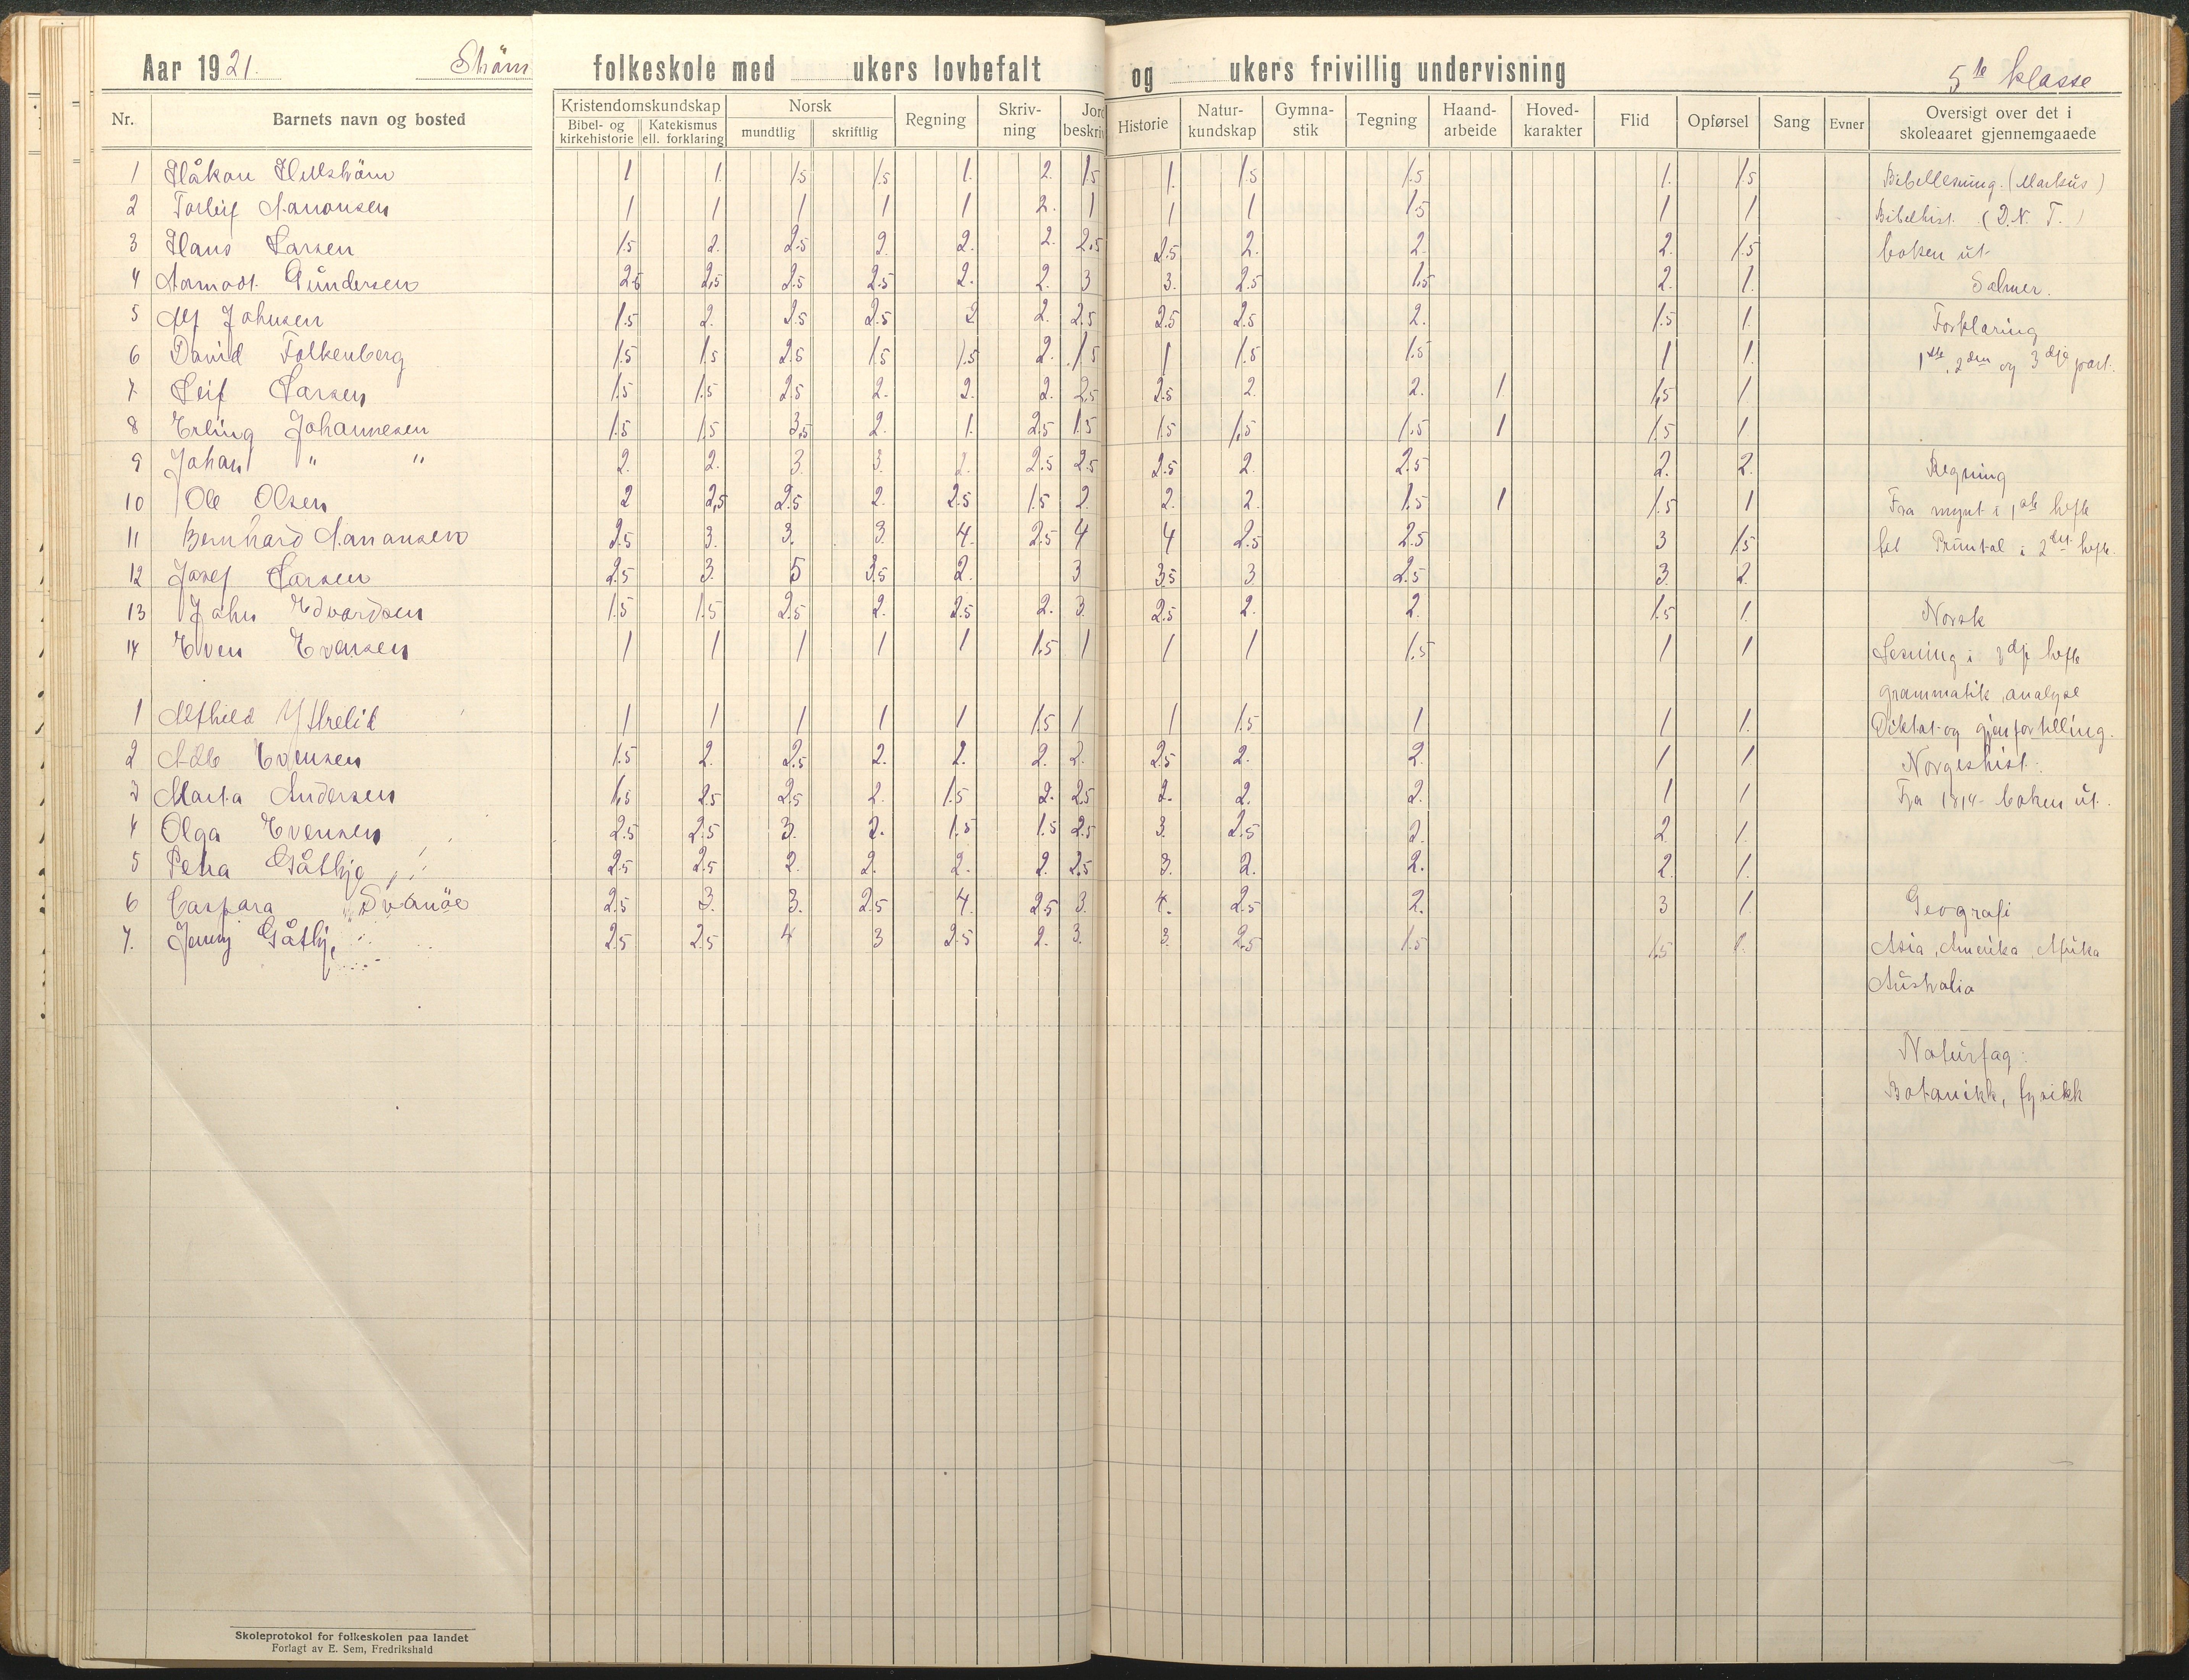 Aar 1921. Strøm folkeskole med ukers lovbefalt og ukers frivillig undervisning 5te klasse
Nr. Barnets navn og bosted Kristendomskundskap Norsk Regning Skriv- ning Jord beskriv Historie Natur- kundskap Gymna- stik Tegning Haand- arbeide Hoved- karakter Flid Opførsel Sang Evner Oversigt over det i skoleaaret gjennemgaaede
Bibel- og kirkehistorie Katekismus ell. forklaring mundtlig skriftlig
1 Håkon Hellstrøm 1 1. 1.5 1.5 1. 2. 1.5 1. 1.5 1.5 1. 1.5 Bibellesning. (Markus)
2 Torleif Aanonsen 1 1 1 1 1 2. 1 1 1 1.5 1 1 Bibelhist. (D.N.T.)
3 Hans Larsen 1.5 2. 2.5 2. 2. 2. 2.5 2.5 2. 2. 2. 1.5 boken ut
4 Aamodt Gundersen 2.5 2.5 2.5 2.5 2. 2. 3 3. 2.5 1.5 2. 1. Salmer.
5 Alf Johnsen 1.5 2. 2.5 2.5 2 2. 2.5 2.5 2.5 2. 1.5 1. Forklaring
6 David Falkenberg 1.5 1.5 2.5 1.5 1.5 2. 1.5 1 1.5 1.5 1 1. 1ste, 2den og 3dje part.
7. Leif Larsen 1.5 1.5 2.5 2. 2. 2. 2.5 2.5 2. 2. 1 1.5 1
8 Erling Johannesen 1.5 1.5 3.5 2. 1. 2.5 1.5 1.5 1.5 1.5 1 1.5 1
9 Johan " " 2. 2. 3. 3. 2. 2.5 2.5 2.5 2. 2.5 2. 2. Regning
10 Ole Olsen 2 2.5 2.5 2. 2.5 1.5 2. 2. 2. 1.5 1 1.5 1 Fra mynt i 1ste hefte
11 Bernhard Aanonsen 2.5 3. 3. 3. 4. 2.5 4 4 2.5 2.5 3 1.5 til Primtal i 2det hefte.
12 Josef Larsen 2.5 3. 5 3.5 2. 3 3.5 3 2.5 3. 2.
13 John Edvardsen 1.5 1.5 2.5 2. 2.5 2. 3. 2.5 2. 2. 1.5 1. Norsk
14 Even Evensen 1 1 1 1 1 1.5 1 1 1 1.5 1 1 Lesning i 3dje hefte
grammatik, analyse
1 Alfhild Ytrelid 1 1 1 1 1 1.5 1 1 1.5 1 1 1. Diktat og gjenfortelling.
2 Adle Evensen 1.5 2. 2.5 2. 2. 2. 2. 2.5 2. 2. 1 1 Norgeshist.
3 Marta Andersen 1.5 2.5 2.5 2. 1.5 2. 2.5 2. 2. 2. 1 1 Fra 1814 boken ut.
4 Olga Evensen 2.5 2.5 3. 2. 1.5 1.5 2.5 3. 2.5 2. 2. 1.
5 Petra Gåthje 2.5 2.5 2. 2. 2. 2. 2.5 3. 2. 2. 2. 1.
6 Caspara Svanøe 2.5 3. 3. 2.5 4. 2.5 3. 4. 2.5 2. 3 1. Geografi
7. Jenny Gåthje 2.5 2.5 4 3 2.5 2. 3. 3. 2.5 1.5 1.5 1. Asia, Amerika, Afrika
Australia
Naturfag:
Botanikk, fysikk
Skoleprotokol for folkeskolen paa landet
Forlagt av E. Sem, Fredrikshald